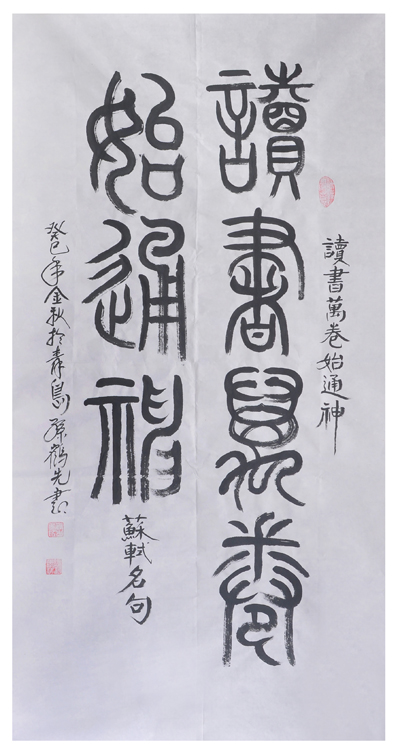 讀書萬卷始通神
讀書萬卷
始通神
蘇軾名句
癸巳年金秋於青島孫鶴先書